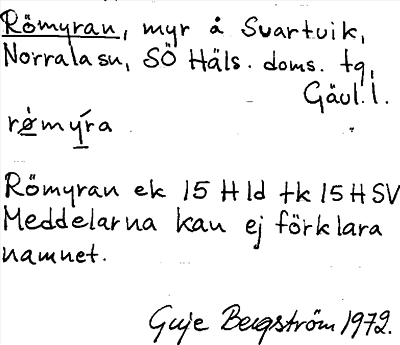 Römyran, myr å Svartvik,
Norrala sn, SÖ Häls. doms. tg,
Gävl. l.
rø̀mý̱ra
Römyran ek 15 H ld tk 15 H SV
Meddelarna kan ej förklara
namnet.
Guje Bergström 1972.